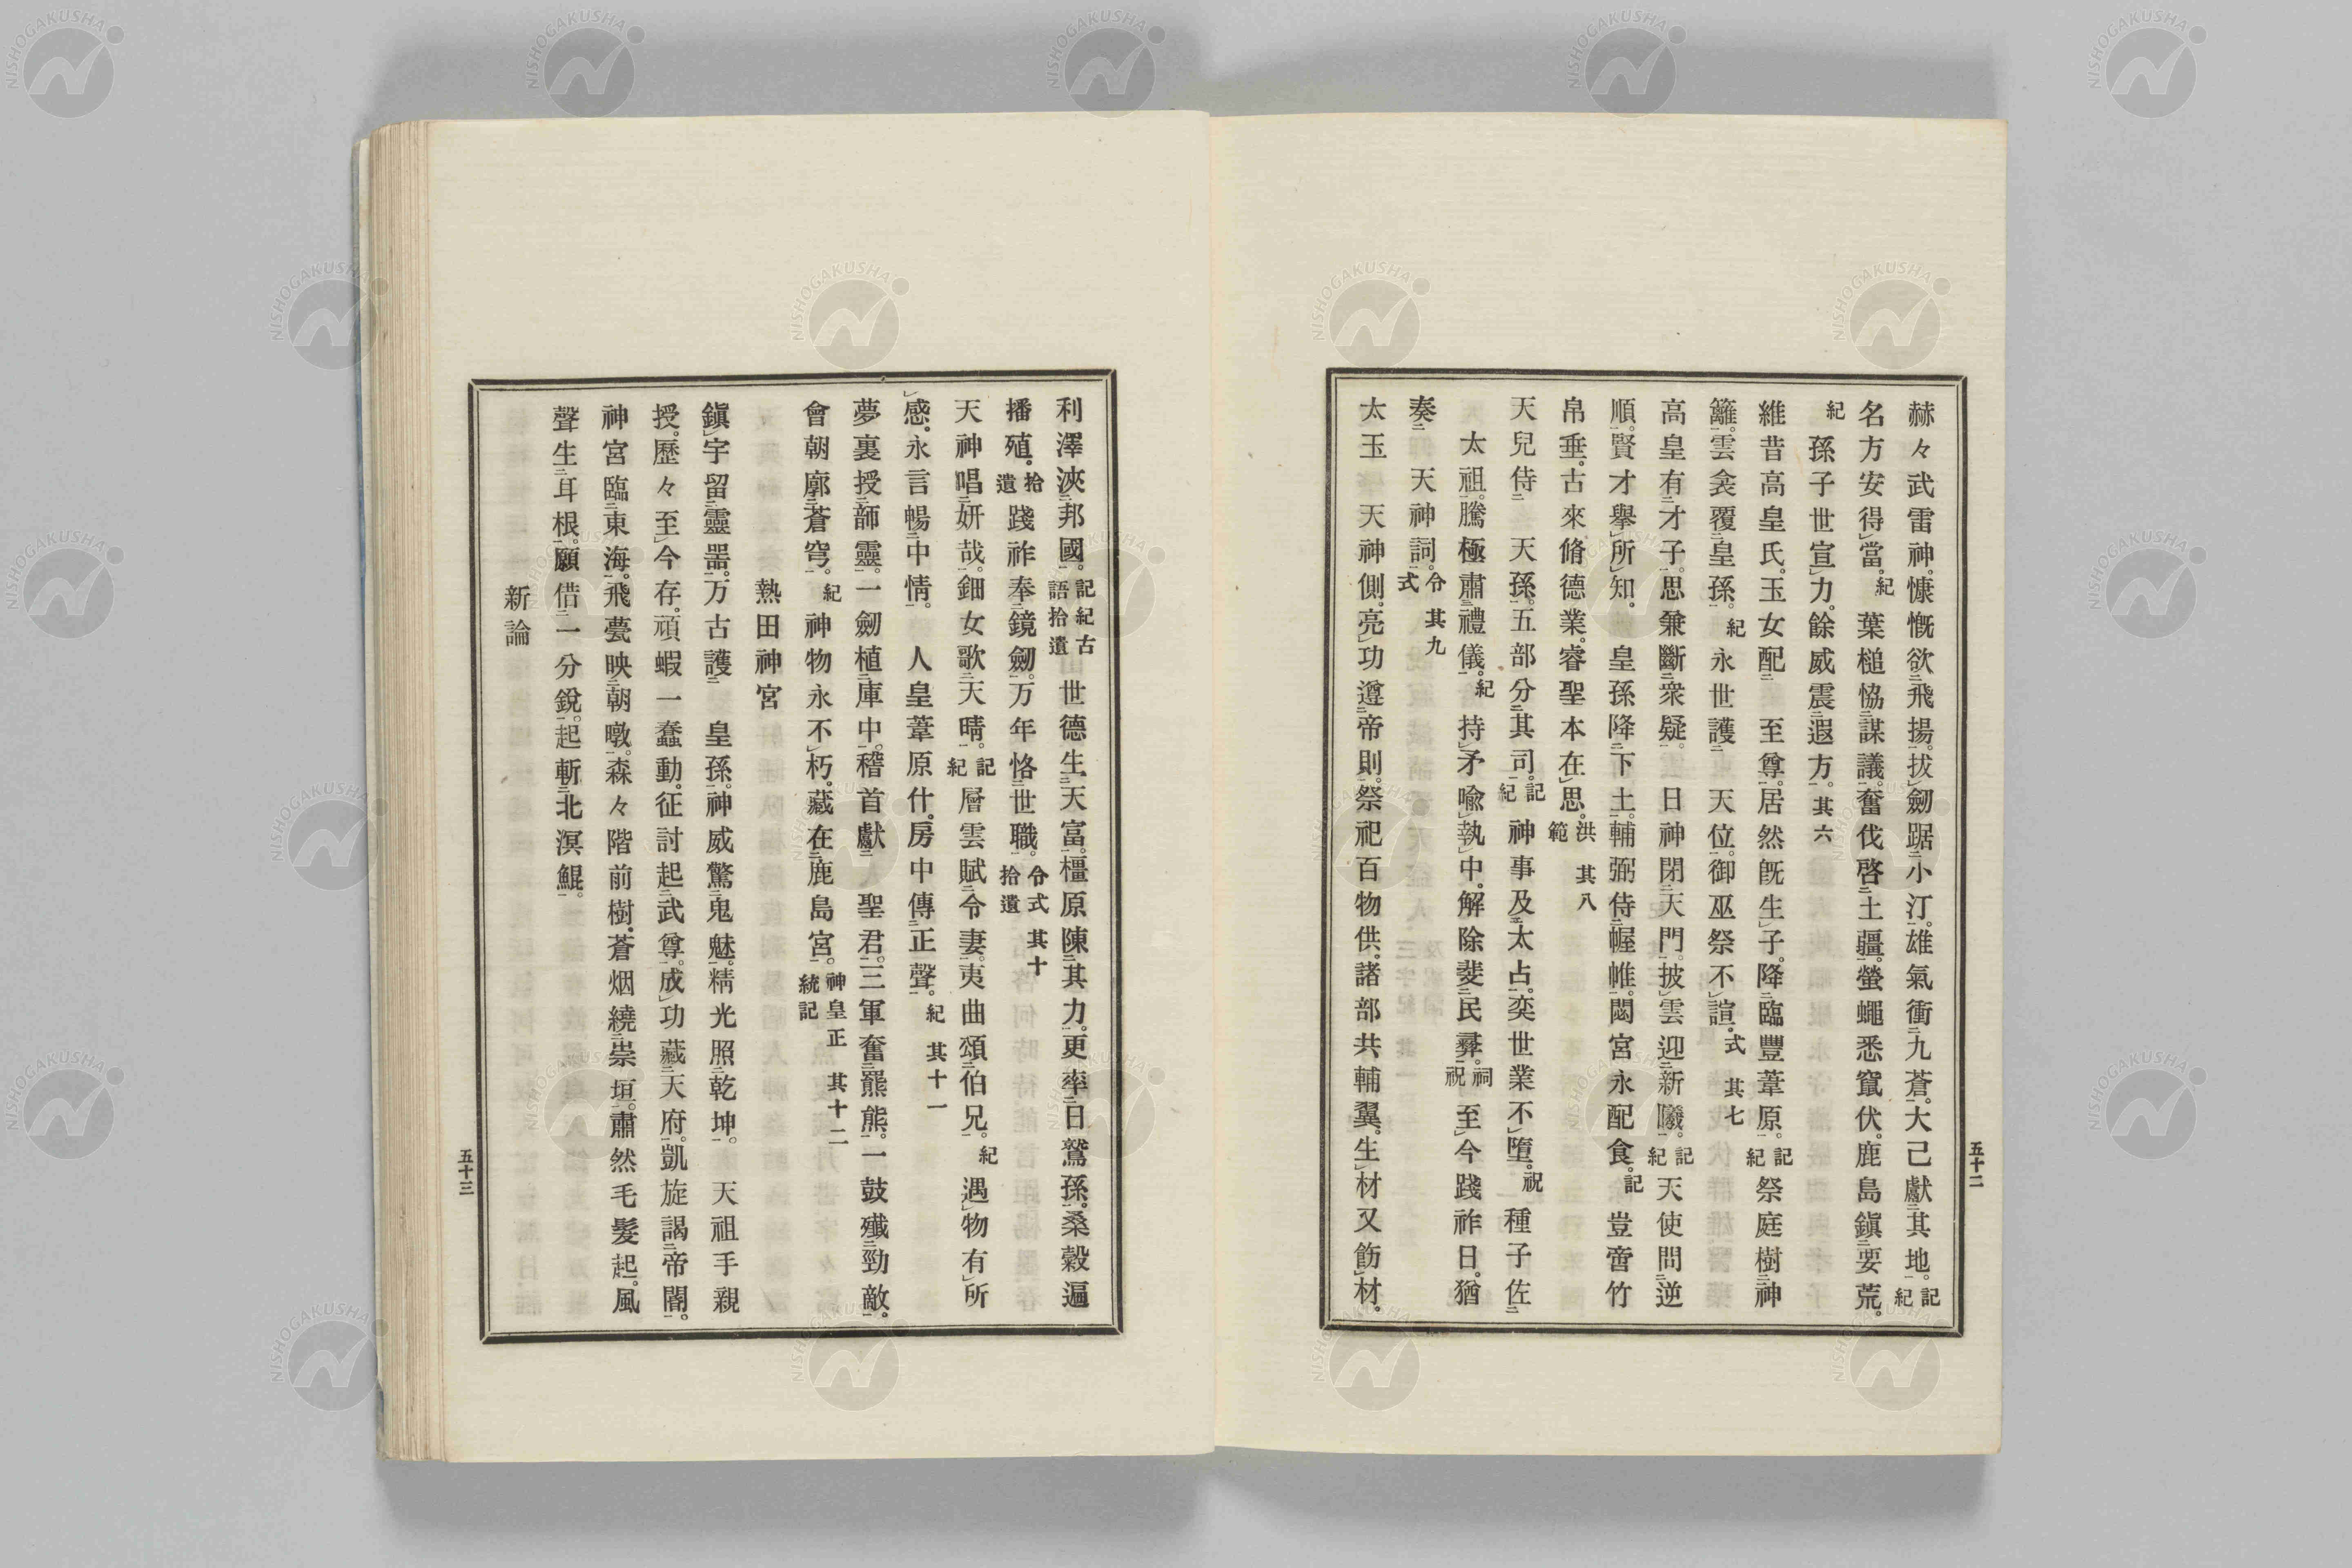 赫々武雷神。慷慨欲飛揚。拔劒踞小汀。雄氣衝九蒼。大己獻其地。記紀
名方安得當。紀 葉槌恊謀議。奮伐啓土疆。螢蠅悉竄伏。鹿島鎭要荒。
紀 孫子世宣力。餘威震遐方。其六
維昔高皇氏。玉女配 至尊。居然既生子。降臨豐葦原。記紀 祭庭樹神
籬。雲衾覆皇孫。紀 永世護 天位。御巫祭不諠。式 其七
高皇有才子。思兼斷衆疑。 日神閉天門。披雲迎新曦。記紀 天使問逆
順。賢才擧所知。 皇孫降下土。輔弼侍幄帷。閟宮永配食。記 豈啻竹
帛垂。古來脩德業。睿聖本在思。洪範 其八
天兒侍 天孫。五部分其司。記紀 神事及太占。奕世業不墮。祝 種子佐
太祖。騰極肅禮儀。紀 持矛喩執中。解除斐民彛。祠祝 至今踐祚日。猶
奏 天神詞。令式 其九
太玉 天神側。亮功遵帝則。祭祀百物供。諸部共輔翼。生材又飭材。
五十二
利澤浹邦國。記紀古語拾遺 世德生天富。橿原陳其力。更率日鷲孫。桑穀遍
播殖。拾遺 踐祚奉鏡劒。万年恪世職。令式拾遺 其十
天神唱妍哉。鈿女歌天晴。記紀 層雲賦令妻。夷曲頌伯兄。紀 遇物有所
感。永言暢中情。 人皇葦原什。房中傳正聲。紀 其十一
夢裏授韴靈。一劒植庫中。稽首獻 聖君。三軍奮羆熊。一鼓殲勁敵。
會朝廓蒼穹。紀 神物永不朽。藏在鹿島宮。神皇正統記 其十二
熱田神宮
鎭宇留靈噐。万古護 皇孫。神威驚鬼魅。精光照乾坤。 天祖手親
授。歷々至今存。頑蝦一蠢動。征討起武尊。成功藏天府。凱旋謁帝閽。
神宮臨東海。飛甍映朝暾。森々階前樹。蒼烟繞崇垣。肅然毛髮起。風
聲生耳根。願借一分銳。起斬北溟鯤。
新論
五十三